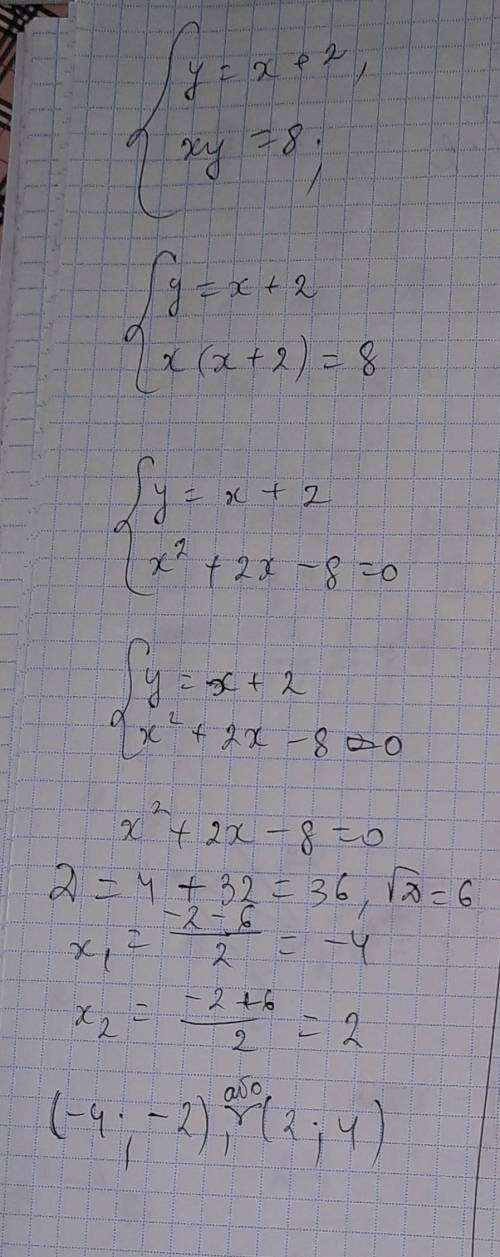 y = x + 2,
xy = 8;
y = x + 2
x(x+2) = 8
y = x + 2
x² + 2x - 8 = 0
y = x + 2
x² + 2x - 8 = 0
x² + 2x - 8 = 0
D = 4 + 32 = 36, √D = 6
x₁ = (-2-6)/2 = -4
x₂ = (-2+6)/2 = 2
(-4; -2), або (2; 4)